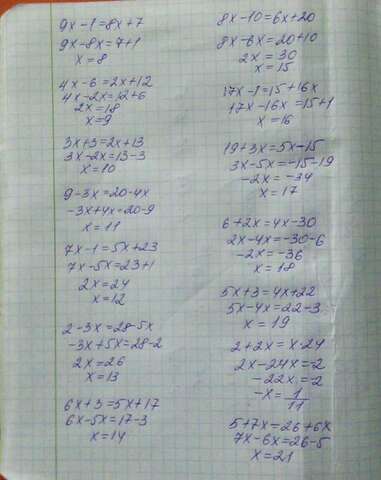 9x-1=8x+7
9x-8x=7+1
x=8
4x-6=2x+12
4x-2x=12+6
2x=18
x=9
3x+3=2x+13
3x-2x=13-3
x=10
9-3x=20-4x
-3x+4x=20-9
x=11
7x-1=5x+23
7x-5x=23+1
2x=24
x=12
2-3x=28-5x
-3x+5x=28-2
2x=26
x=13
6x+3=5x+17
6x-5x=17-3
x=14
8x-10=6x+20
8x-6x=20+10
2x=30
x=15
17x-1=15+16x
17x-16x=15+1
x=16
19+3x=5x-15
3x-5x=-15-19
-2x=-34
x=17
6+2x=4x-30
2x-4x=-30-6
-2x=-36
x=18
5x+3=4x+22
5x-4x=22-3
x=19
2+2x=x·24
2x-24x=-2
-22x=-2
-x=1/11
5+7x=26+6x
7x-6x=26-5
x=21